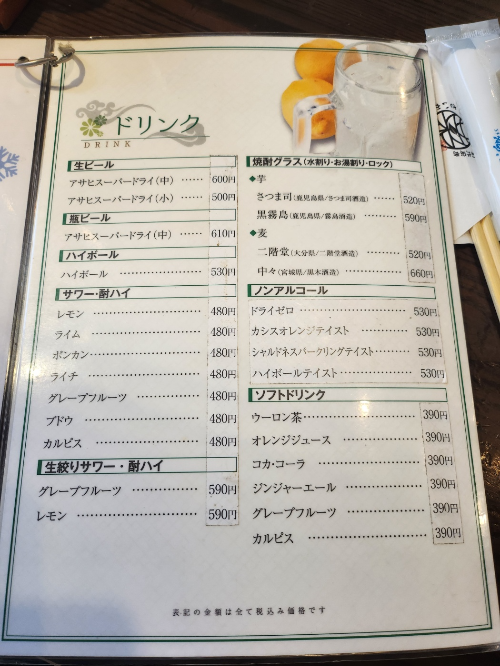 ドリンク
DRINK
生ビール
アサヒスーパードライ(中) …… 600円
アサヒスーパードライ(小) …… 500円
瓶ビール
アサヒスーパードライ(中) …… 610円
ハイボール
ハイボール …… 530円
サワー・酎ハイ
レモン …… 480円
ライム …… 480円
ポンカン …… 480円
ライチ …… 480円
グレープフルーツ …… 480円
ブドウ …… 480円
カルピス …… 480円
生絞りサワー・酎ハイ
グレープフルーツ …… 590円
レモン …… 590円
焼酎グラス(水割り・お湯割り・ロック)
◆芋
さつま司(鹿児島県/さつま司酒造) …… 520円
黒霧島(鹿児島県/霧島酒造) …… 590円
◆麦
二階堂(大分県/二階堂酒造) …… 520円
中々(宮城県/黒木酒造) …… 660円
ノンアルコール
ドライゼロ …… 530円
カシスオレンジテイスト …… 530円
シャルドネスパークリングテイスト …… 530円
ハイボールテイスト …… 530円
ソフトドリンク
ウーロン茶 …… 390円
オレンジジュース …… 390円
コカ・コーラ …… 390円
ジンジャーエール …… 390円
グレープフルーツ …… 390円
カルピス …… 390円
表記の金額は全て税込み価格です